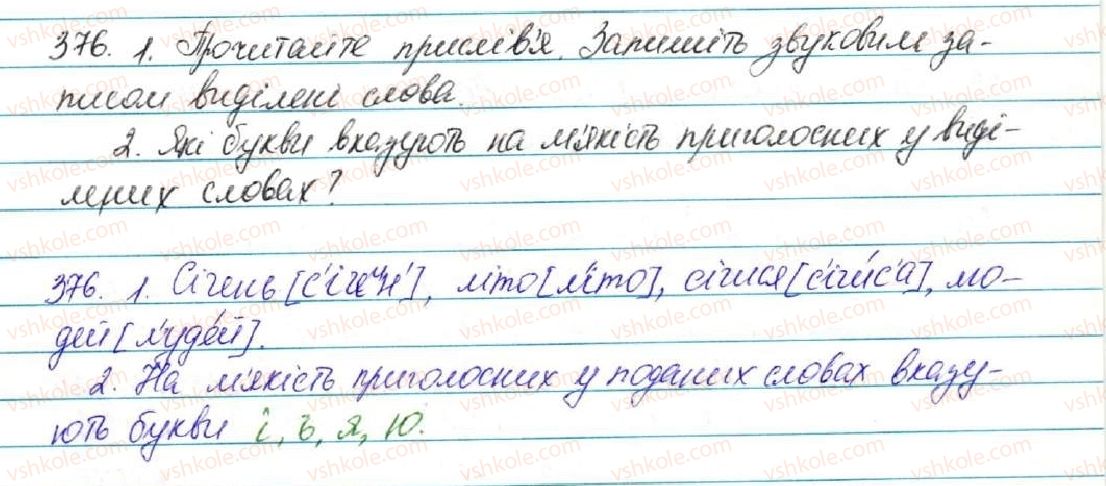 376. 1. Прочитайте прислів'я. Запишіть звуковим за-
писом виділені слова.
2. Які букви вказують на м'якість приголосних у виді-
лених словах?
376. 1. Січень [с'ічеин'], літо [л'іто], сійся [с'ійс'а], лю-
дей [л'удей].
2. На м'якість приголосних у поданих словах вказу-
ють букви і, ь, я, ю.